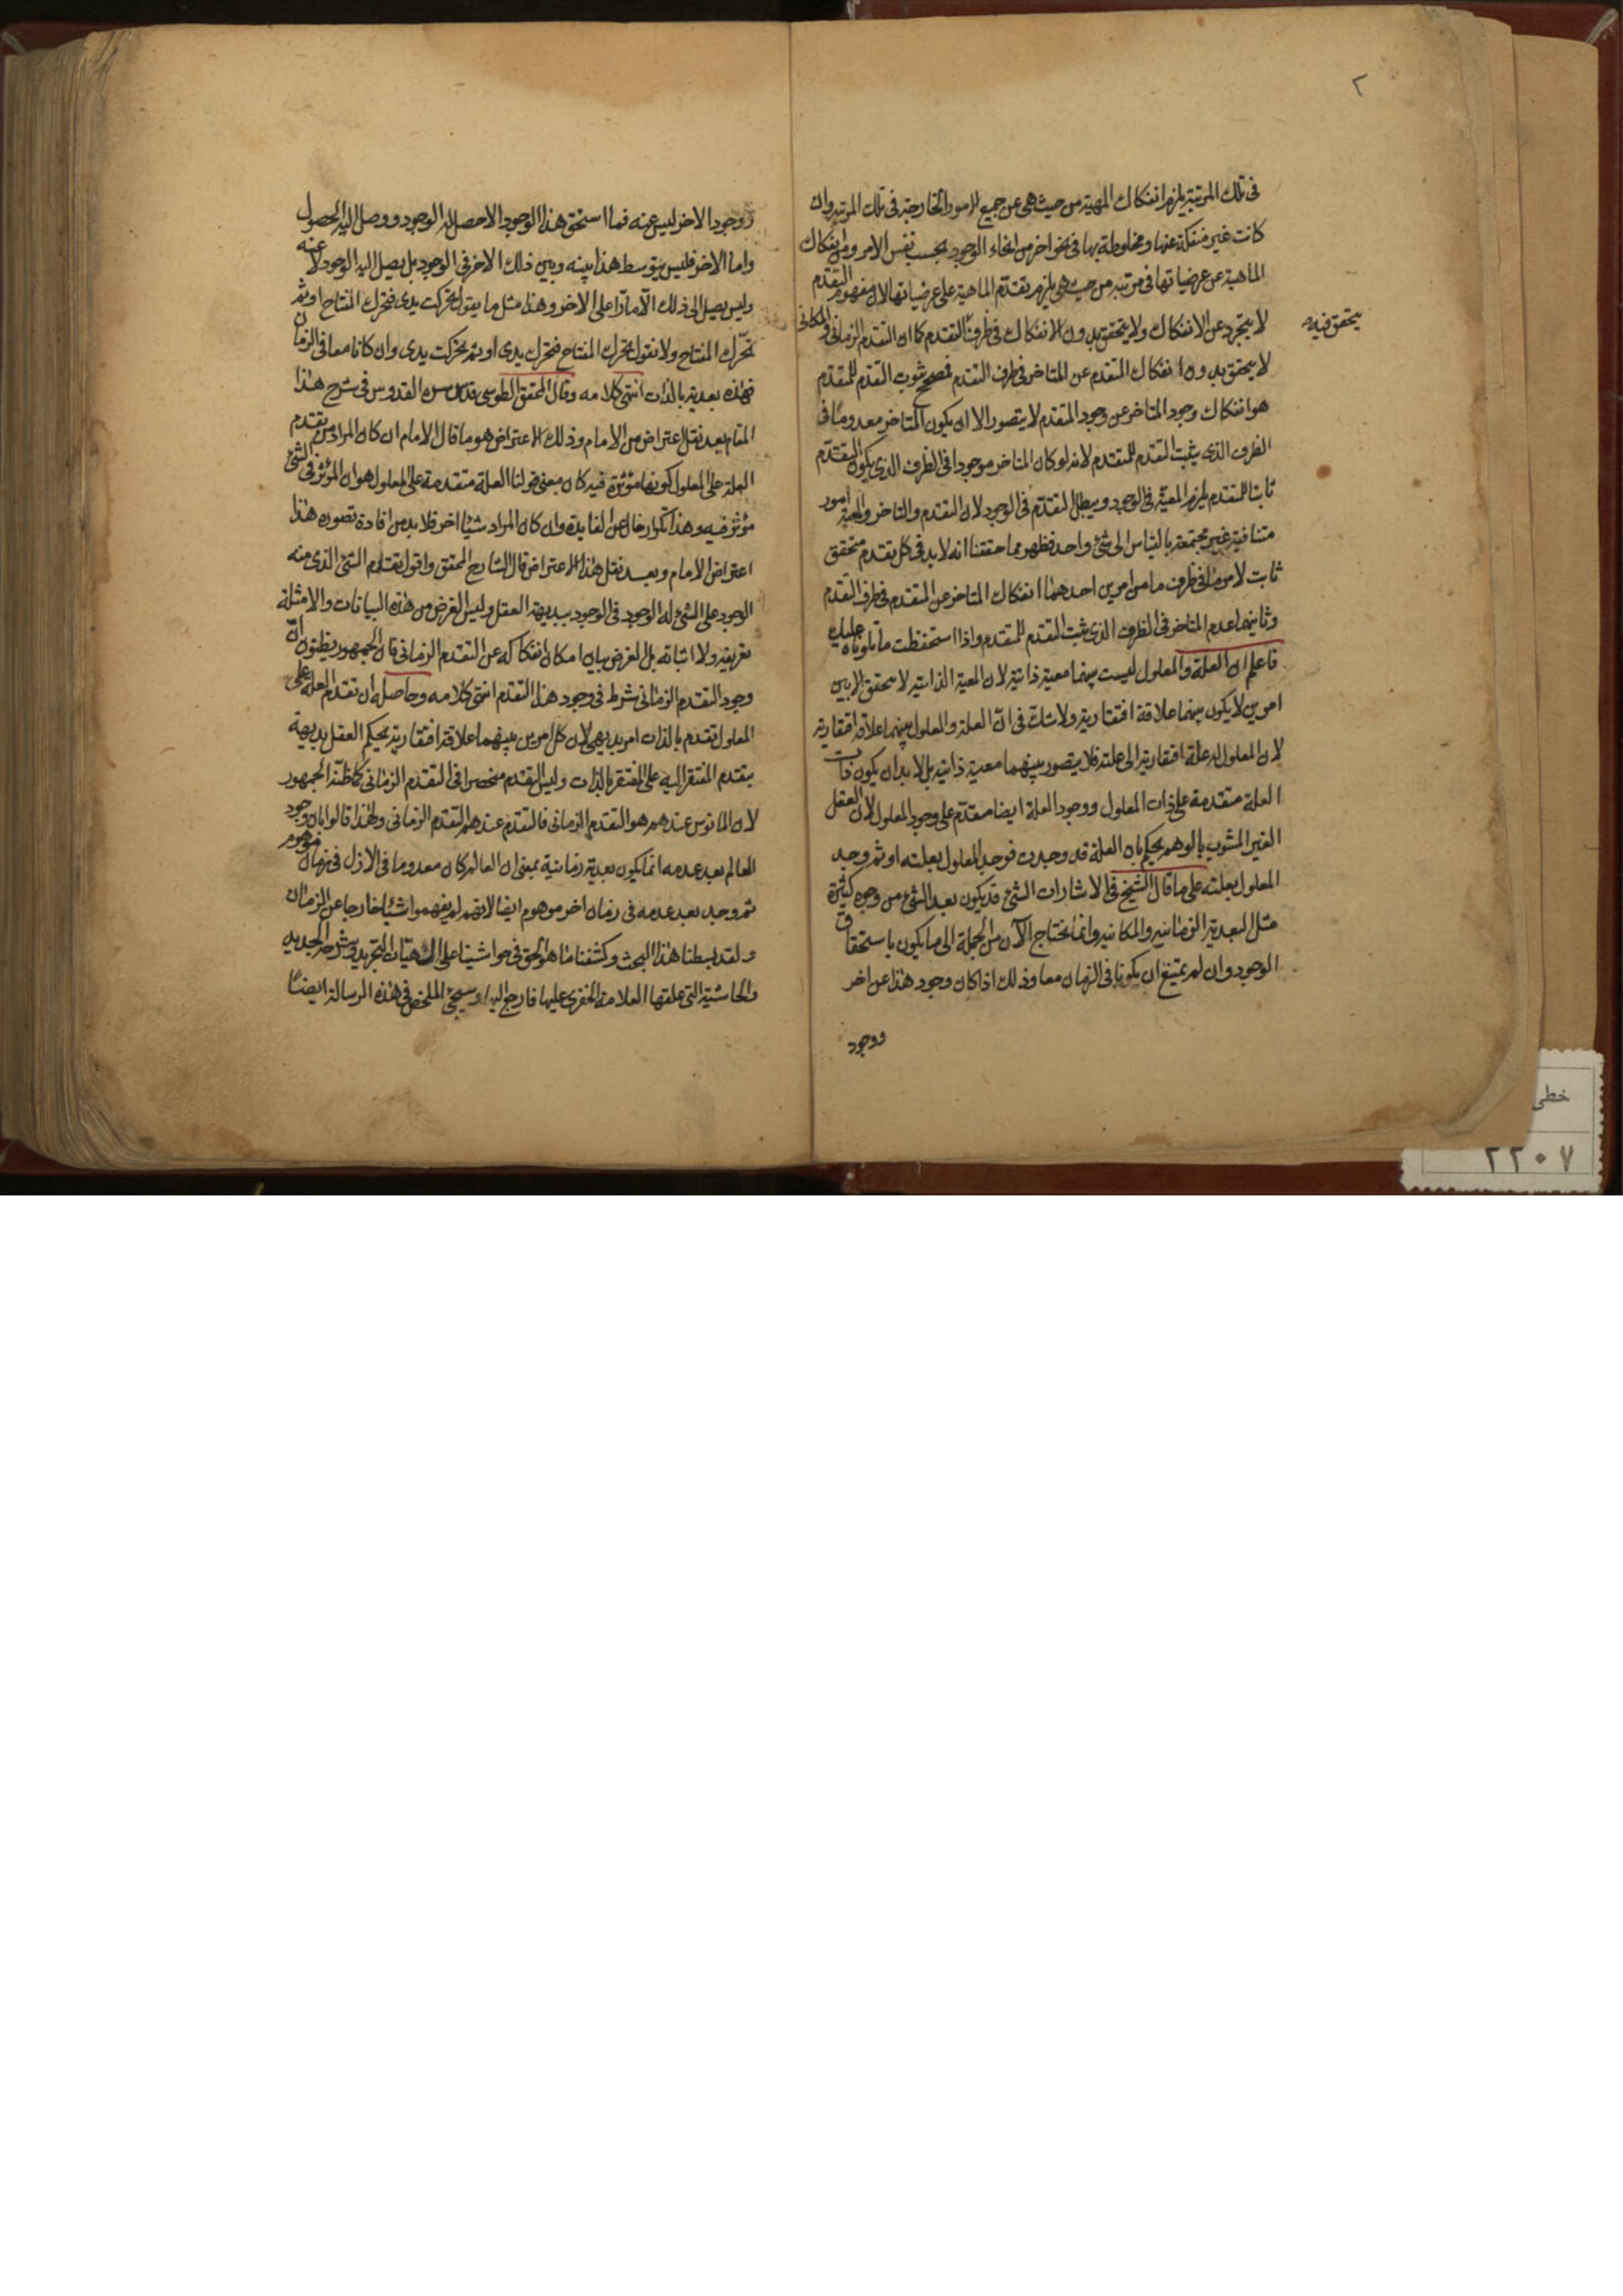 ٢
فى تلك المرتبة يلزم انفكاك المهية من حيث هى عن جميع الامور الخارجة فى تلك المرتبة وان
كانت غير منفكة عنها ومخلوطة بها فى نحو اخر من انحاء الوجود بحسب نفس الامر وانفكاك
الماهية عن عرضياتها فى مرتبة من حيث هى يلزم تقدم الماهية على عرضياتها لان مفهوم التقدم
لا يتجرد عن الانفكاك ولا يتحقق بدون الانفكاك فى ظرف التقدم كما ان التقدم الزمانى والمكانى
يتحقق فيه
لا يتحقق بدون انفكاك المتقدم عن المتاخر فى ظرف التقدم فصحح ثبوت التقدم للمتقدم
هو انفكاك وجود المتاخر عن وجود المتقدم لا يتصور الا ان يكون المتاخر معدوما فى
الظرف الذى يثبت التقدم للمتقدم لانه لو كان المتاخر موجودا فى الظرف الذى يكون التقدم
ثابتا للمتقدم يلزم المعية فى الوجود ويبطل التقدم فى الوجود لان التقدم والتاخر والمعية امور
متنافية غير مجتمعة بالقياس الى شئ واحد فظهر مما حققنا انه لا بد فى كل تقدم متحقق
ثابت لامر ما فى ظرف ما من امرين احدهما انفكاك المتاخر عن المتقدم فى ظرف التقدم
وثانيهما عدم المتاخر فى الظرف الذى يثبت التقدم للمتقدم واذا استحفظت ما تلوناه عليك
فاعلم ان العلة والمعلول ليست بينهما معية ذاتية لان المعية الذاتية لا يتحقق الا بين
امرين لا يكون بينهما علاقة افتقارية ولا شك فى ان العلة والمعلول بينهما علاقة افتقارية
لان المعلول له علاقة افتقارية الى علته فلا يتصور بينهما معية ذاتية بل لا بد ان يكون ذات
العلة متقدمة على ذات المعلول ووجود العلة ايضا متقدم على وجود المعلول لان العقل
الغير المشوب بالوهم يحكم بان العلة قد وجدت فوجد المعلول بعلته او ثم وجد
المعلول بعلته على ما قال الشيخ فى الاشارات الشئ قد يكون بعد الشئ من وجوه كثيرة
مثل البعدية الزمانية والمكانية وانما نحتاج الآن من الجملة الى ما يكون باستحقاق
الوجود وان لم يمتنع ان يكونا فى الزمان معا وذلك اذا كان وجود هذا عن اخر
ووجود
ووجود الاخر ليس عنه فما استحق هذا الوجود الا حصل له الوجود ووصل اليه الحصول
واما الاخر فليس يتوسط هذا بينه وبين ذلك الاخر فى الوجود بل يصل اليه الوجود لا عنه
وليس يصل الى ذلك الا مارّا على الاخر وهذا مثل ما يقول تحركت يدى فتحرك المفتاح او ثم
تحرك المفتاح ولا نقول تحرك المفتاح فتحرك يدى او ثم تحركت يدى وان كانا معا فى الزمان
فهذه بعدية بالذات انتهى كلامه وقال المحقق الطوسى قدس سره القدوس فى شرح هذا
المقام بعد نقل اعتراض من الامام وذلك الاعتراض هو ما قال الامام ان كان المراد من تقدم
العلة على المعلول كونها مؤثرة فيه كان معنى قولنا العلة متقدمة على المعلول هو ان المؤثر فى الشئ
مؤثر فيه وهذا تكرار خال عن الفايدة وان كان المراد شيئا اخر فلا بد من افادة تصوره هذا
اعتراض الامام وبعد نقل هذا الاعتراض قال الشارح المحقق واقول تقدم الشئ الذى منه
الوجود على الشئ له الوجود فى الوجود ببديهة العقل وليس الغرض من هذه البيانات والامثلة
تعريفه ولا اثباته بل الغرض بيان امكان انفكاكه عن التقدم الزمانى فان الجمهور يظنون ان
وجود التقدم الزمانى شرط فى وجود هذا التقدم انتهى كلامه وحاصله ان تقدم العلة على
المعلول تقدم بالذات امر بديهى لان كل امرين بينهما علاقة افتقارية يحكم العقل بديهة
بتقدم المفتقر اليه على المفتقر بالذات وليس التقدم منحصرا فى التقدم الزمانى كما ظنه الجمهور
لان المانوس عندهم هو التقدم الزمانى فالتقدم عندهم التقدم الزمانى ولهذا قالوا بان وجود
العالم بعد عدمه انما يكون بعدية زمانية بمعنى ان العالم كان معدوما فى الازل فى زمان موهوم
ثم وجد بعد عدمه فى زمان اخر موهوم ايضا لانهم لم يفهموا شيئا خارجا عن الزمان
ولقد بسطنا هذا البحث وكشفنا ما هو الحق فى حواشينا على الهيات التجريد وشرحه الجديد
والحاشية التى علقها العلامة الخفرى عليها فارجع اليها وسيجئ الملخص فى هذه الرسالة ايضا
خطى
٢٢٠٧